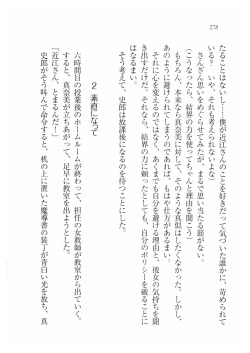 278
たることはないし……僕が近江さんのことを好きだって気づいた誰かに、苛められて
いる？　いや、それも考えられないよな）
さんざん思いをめぐらせてみたが、まるで思い当たる節がない。
（こうなったら、結界の力を使ってちゃんと理由を聞こう）
もちろん、本来なら真奈美に対して、あのような真似はしたくなかった。しかし、
あのように避けられてしまうのであれば、もはや仕方があるまい。
それに心を変えるのではなく、あくまでも自分を避ける理由と、彼女の気持ちを聞
き出すだけだ。それなら、結界の力に頼ったとしても、自分のポリシーを破ることに
はなるまい。
そう考えて、史郎は放課後になるのを待つことにした。
２　素直になって
六時間目の授業後のホームルームが終わって、担任の女教師が教室から出ていく。
すると、真奈美が立ちあがって、足早に教室を出ようとした。
「近江さん、とまるんだ！」
史郎がそう叫んで命令すると、机の上に置いた魔導書の装丁が青白い光を放ち、真